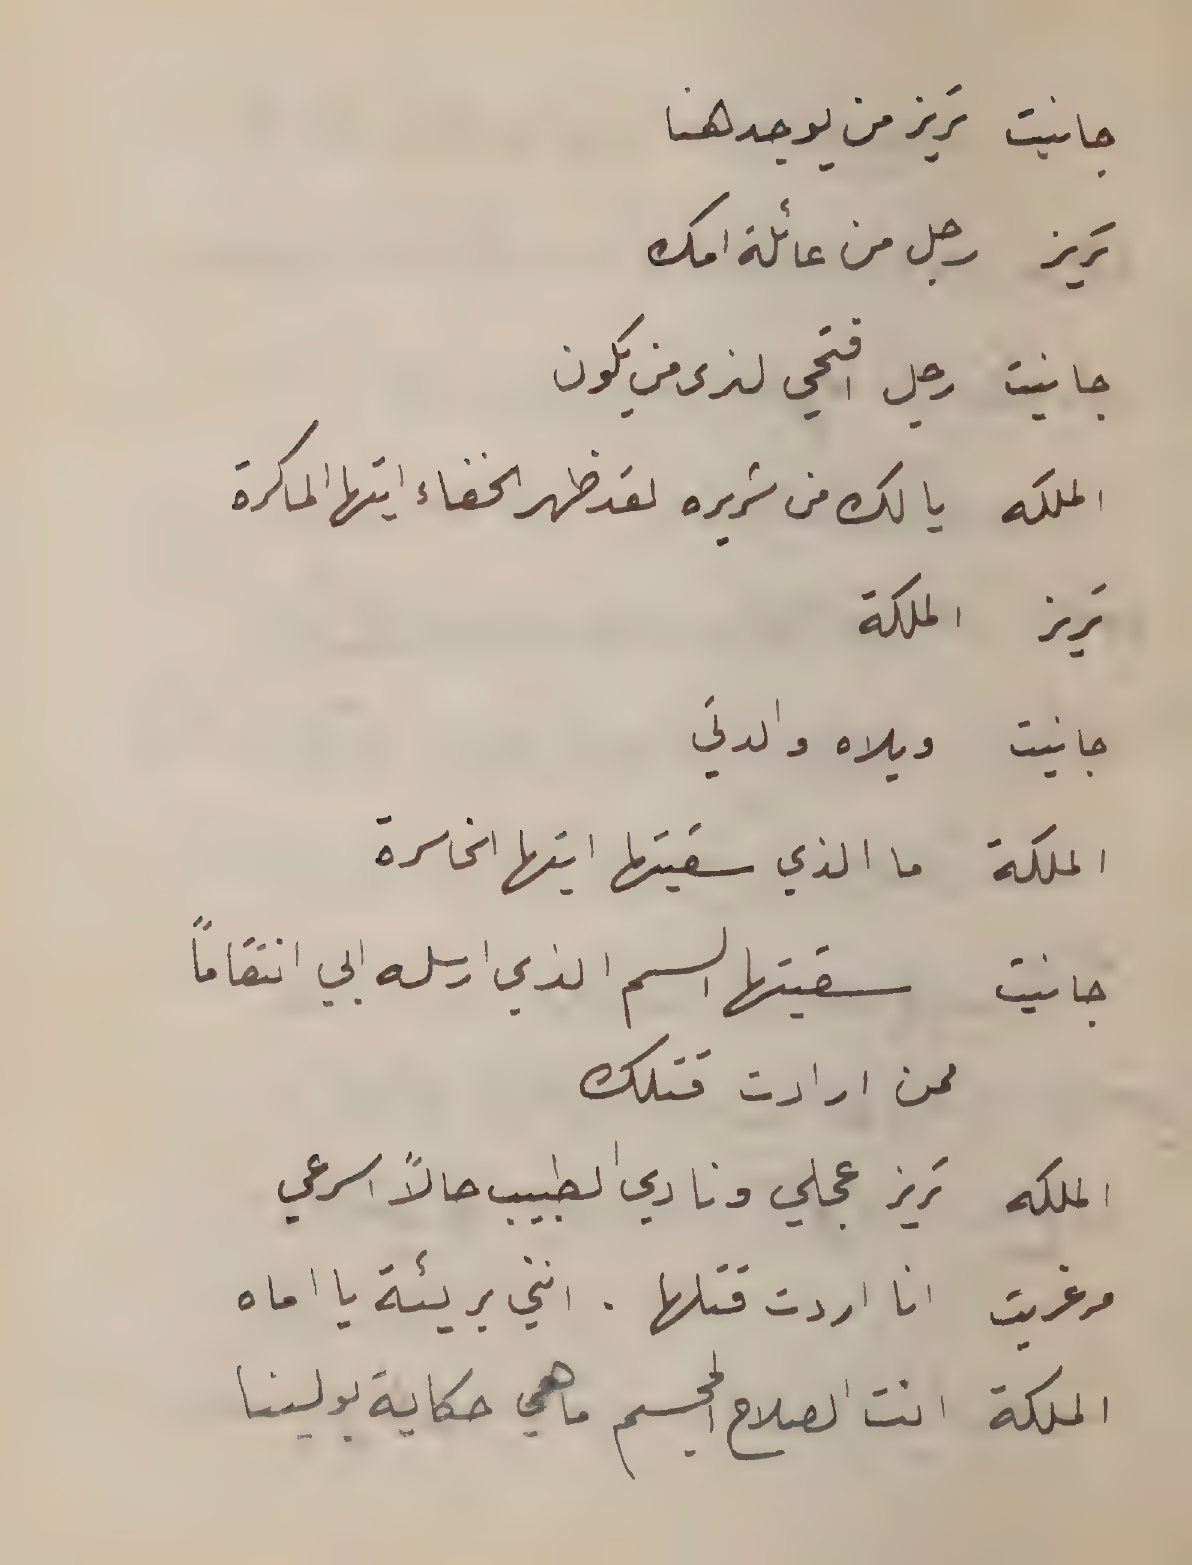 جانيت تريز من يوجد هنا
تريز رجل من عائلة امك
جانيت رجل افتحي لنرى من يكون
الملكه يا لك من شريره لقد ظهر الخفاء ايتها الماكرة
تريز الملكة
جانيت ويلاه والدتي
الملكة ما الذي سقيتها ايتها الخاسرة
جانيت سقيتها السم الذي ارسله ابي انتقاماً
ممن ارادت قتلك
الملكه تريز عجلي ونادي الطبيب حالاً اسرعي
مرغريت انا اردت قتلها . انني بريئة يا اماه
الملكة انت الصلاح المجسم ما هي حكاية بولينا